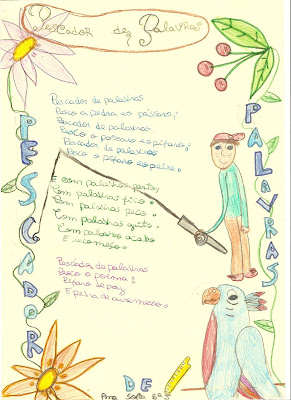 Pescador de Palavras
Pescador de palavras
Pesco a pedra ao pássaro;
Pescador de palavras
Pesco o pássaro ao pífaro;
Pescador de palavras
Pesco o pífaro ao peixe.
E com palavras parto,
Com palavras fico.
Com palavras peco.
Com palavras grito.
Com palavras acabo
E recomeço.
Pescador de palavras
Pesco o poema:
Pífaro de paz
E pedra de
PESCADOR
DE
PALAVRAS
Ana Sofia 6º